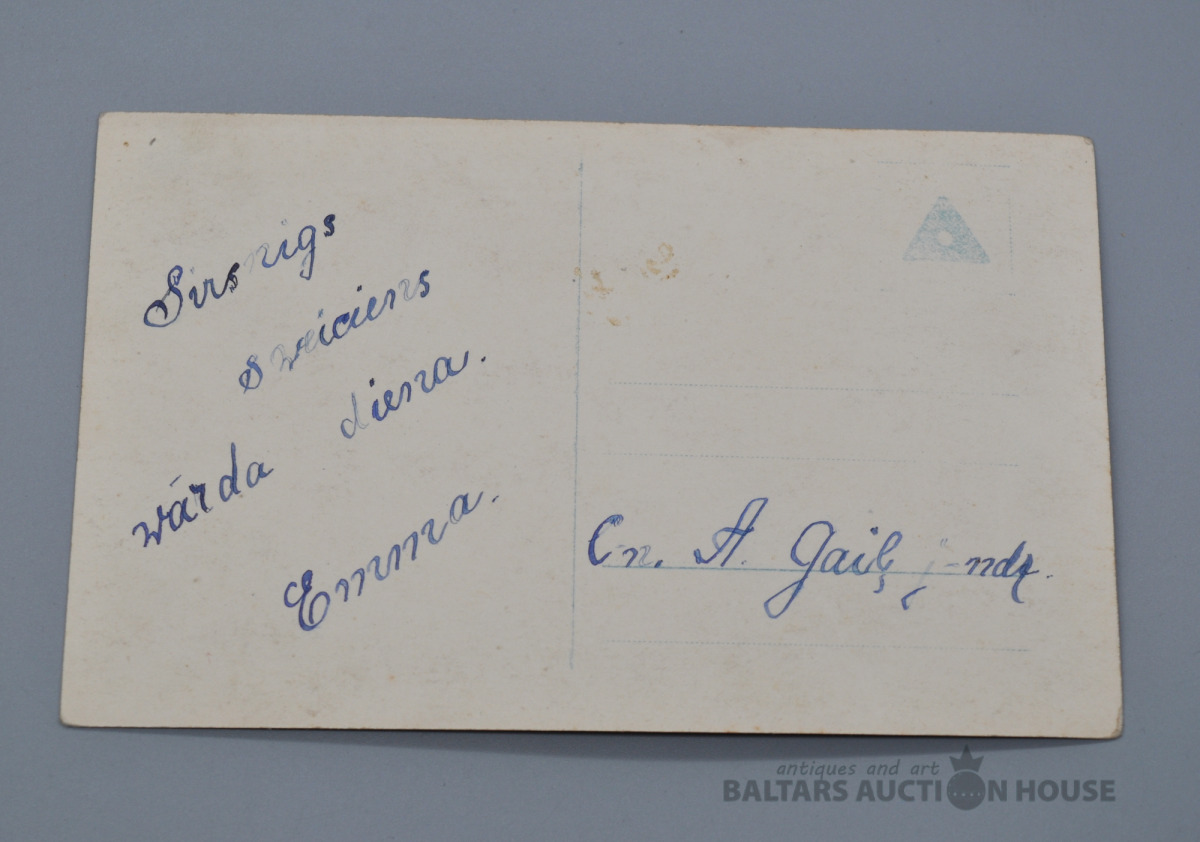 Sirsnigs
sweiciens
wārda diena.
Emma.
Cn. A. Gaiļ -ndz.
antiques and art
BALTARS AUCTION HOUSE